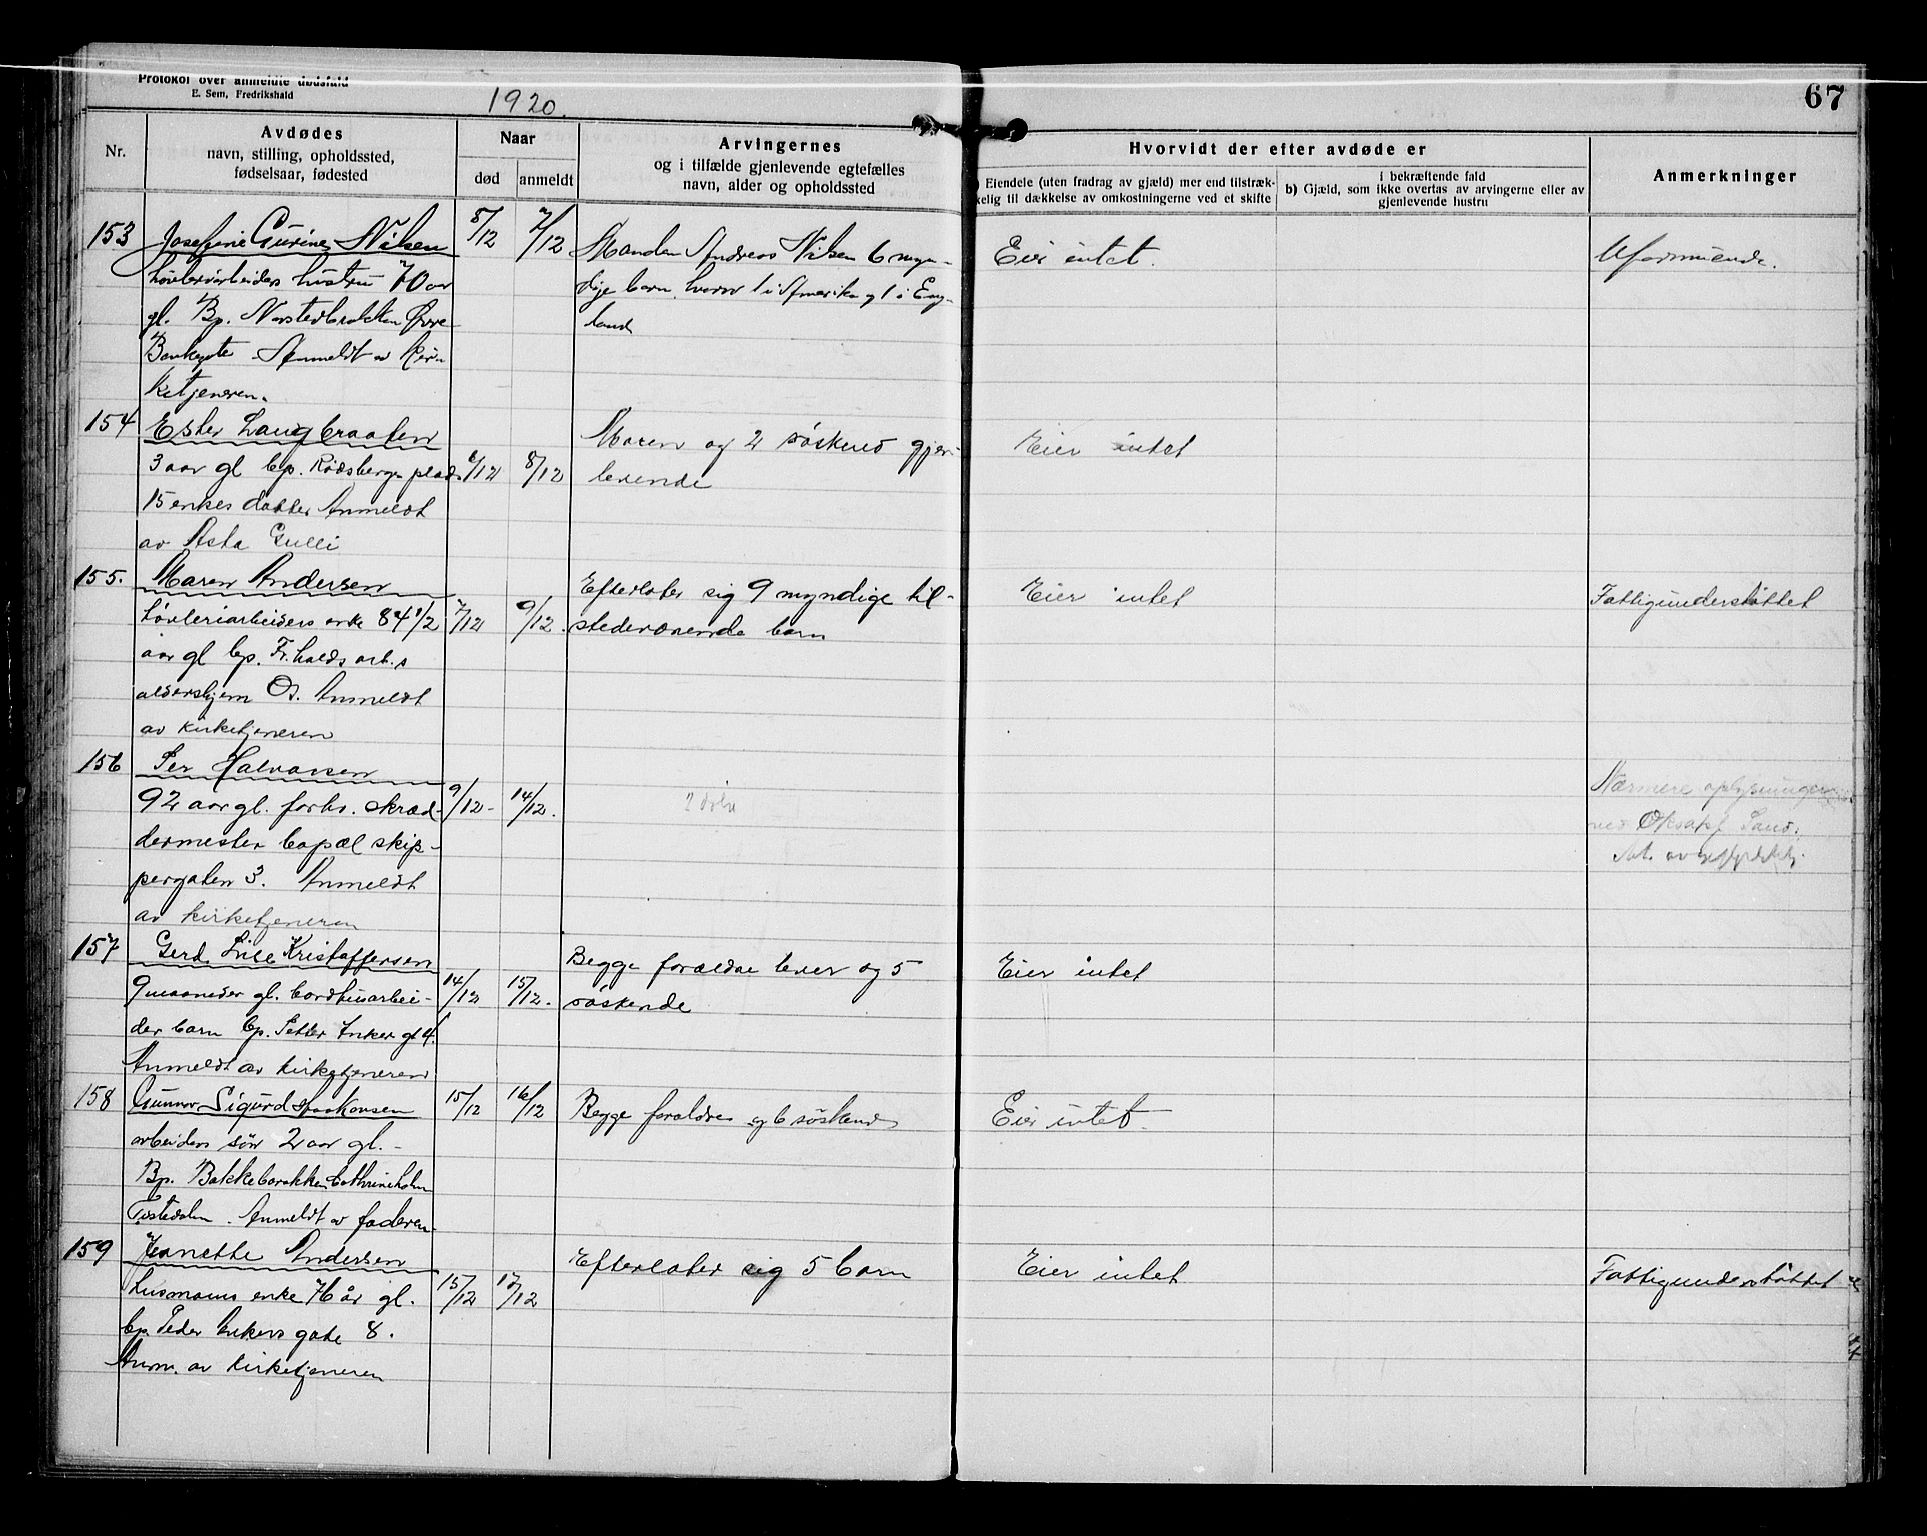 Protokol over anmeldte dødsfald
E. Sem, Fredrikshald
1920.
67
Nr.
Avdødes
navn, stilling, opholdssted,
fødselsaar, fødested
Naar
død
anmeldt
Arvingernes
og i tilfælde gjenlevende egtefælles
navn, alder og opholdssted
Hvorvidt der efter avdøde er
) Eiendele (uten fradrag av gjæld) mer end tilstræk-
kelig til dækkelse av omkostningerne ved et skifte
i bekræftende fald
b) Gjæld, som ikke overtas av arvingerne eller av
gjenlevende hustru
Anmerkninger
153 Josefine Gurine Nilsen 5/12 7/12
høvleriarbeiders hustru 70 aar
gl. Bp. Øvre
Bankegate Anmeldt av kir-
ketjeneren.
Manden Andreas Nilsen 6 myn-
dige barn, hvorav 1 i Amerika og 1 i Eng-
land
Eier intet.
Uformuende.
154 Ester Langbraaten
3 aar gl bp. Rødsberg plads 6/12 8/12
15 enkes datter Anmeldt
av Asta Gulli
Moren og 2 søskend gjen-
levende
Eier intet
155. Maren Andersen
høvleriarbeiders enke 84 1/2 7/12 9/12.
aar gl bp. Fr.halds arb.s
aldershjem Os. Anmeldt
av kirketjeneren
Efterlater sig 9 myndige til-
stedeværende barn
Eier intet
Fattigunderstøttet
156 Per Halvorsen
92 aar gl. forhv. skræd- 9/12 - 14/12.
dermester bopæl skip-
pergaten 3. Anmeldt
av kirketjeneren
Nærmere oplysninger
ved
157 Gerd Lill Kristoffersen
9 maaneder gl. bordhusarbei- 14/12 15/12.
der barn bp. Petter Anker gt 4.
Anmeldt av kirketjeneren
Begge forældre lever og 5
søskende
Eier intet
158 Gunnar Sigurd Haakonsen 15/12 16/12
arbeiders søn 2 aar gl. -
Bp. Bakkebarakken Cathrineholm
Tistedalen. Anmeldt av faderen
Begge forældre og 6 søskend
Eier intet
159 Jeanette Andersen
husmanns enke 76 år gl. 15/12 17/12
bp. Peder Ankers gate 8.
Anm. av kirketjeneren
Efterlater sig 5 barn
Eier intet
Fattigunderstøttet